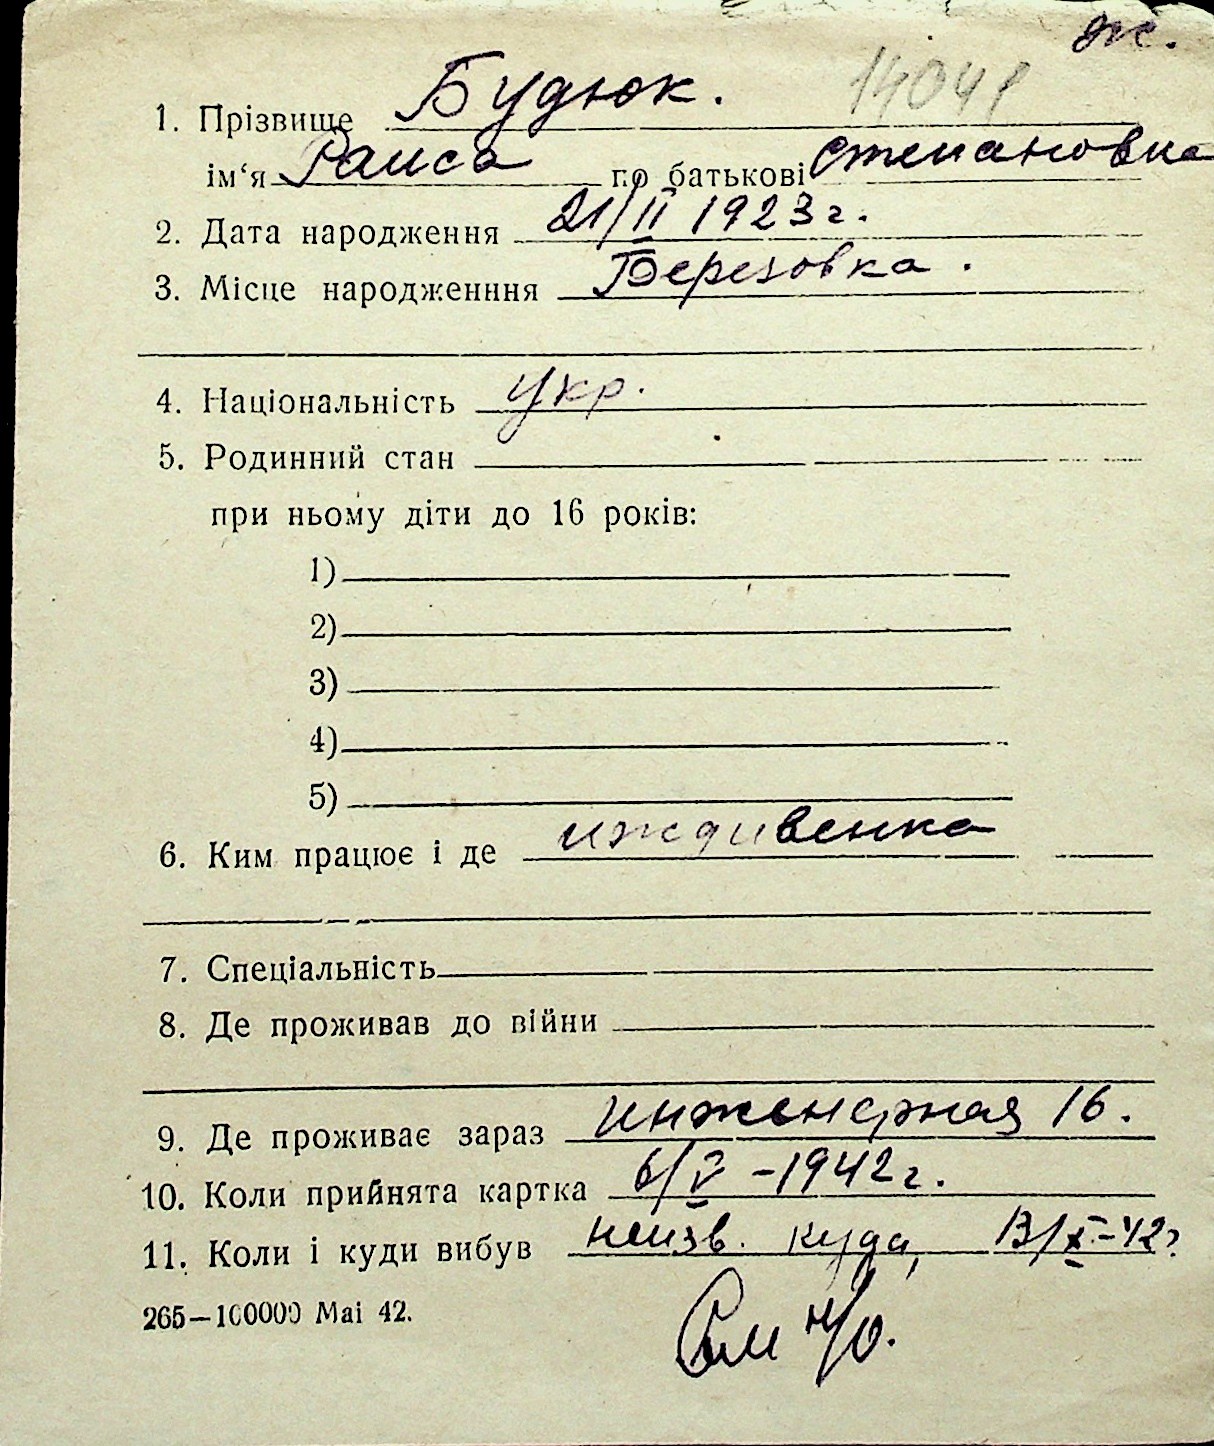 ж.
1. Прізвище Будюк. 14041
ім‘я Раиса по батькові Степановна
2. Дата народження 21/II 1923 г.
3. Місце народженння Березовка.
4. Національність Укр.
5. Родинний стан
при ньому діти до 16 років:
1)
2)
3)
4)
5)
6. Ким працює і де иждивенка
7. Спеціальність
8. Де проживав до війни
9. Де проживає зараз Инженерная 16.
10. Коли прийнята картка 6/V -1942 г.
11. Коли і куди вибув неизв. куда, 13/X-42 г
265—100000 Mai 42.